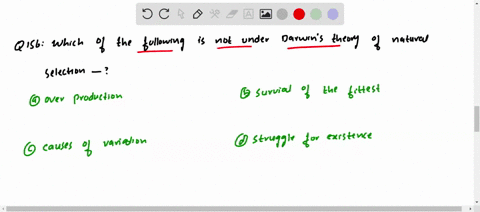 Q156: which of the following is not under Darwin's theory of natural
selection — ?
(a) over production
(b) survial of the fittest
(c) causes of variation
(d) struggle for existence